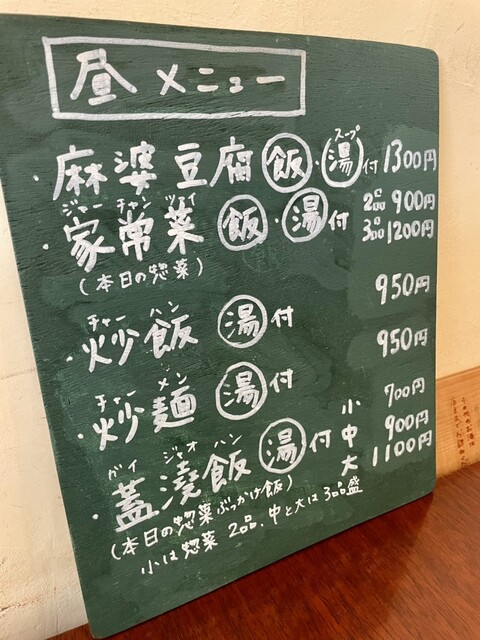 昼メニュー
スープ
・麻婆豆腐 飯・湯付 1300円
ジャー チャン ツァイ
・家常菜 飯・湯付 2品 900円
3品 1200円
(本日の惣菜)
チャー ハン
・炒飯 湯付 950円
チャー メン
・炒麺 湯付 950円
ガイ ジャオ ハン
・蓋澆飯 湯付 小 700円
中 900円
大 1100円
(本日の惣菜ぶっかけ飯)
小は惣菜 2品、中と大は3品盛